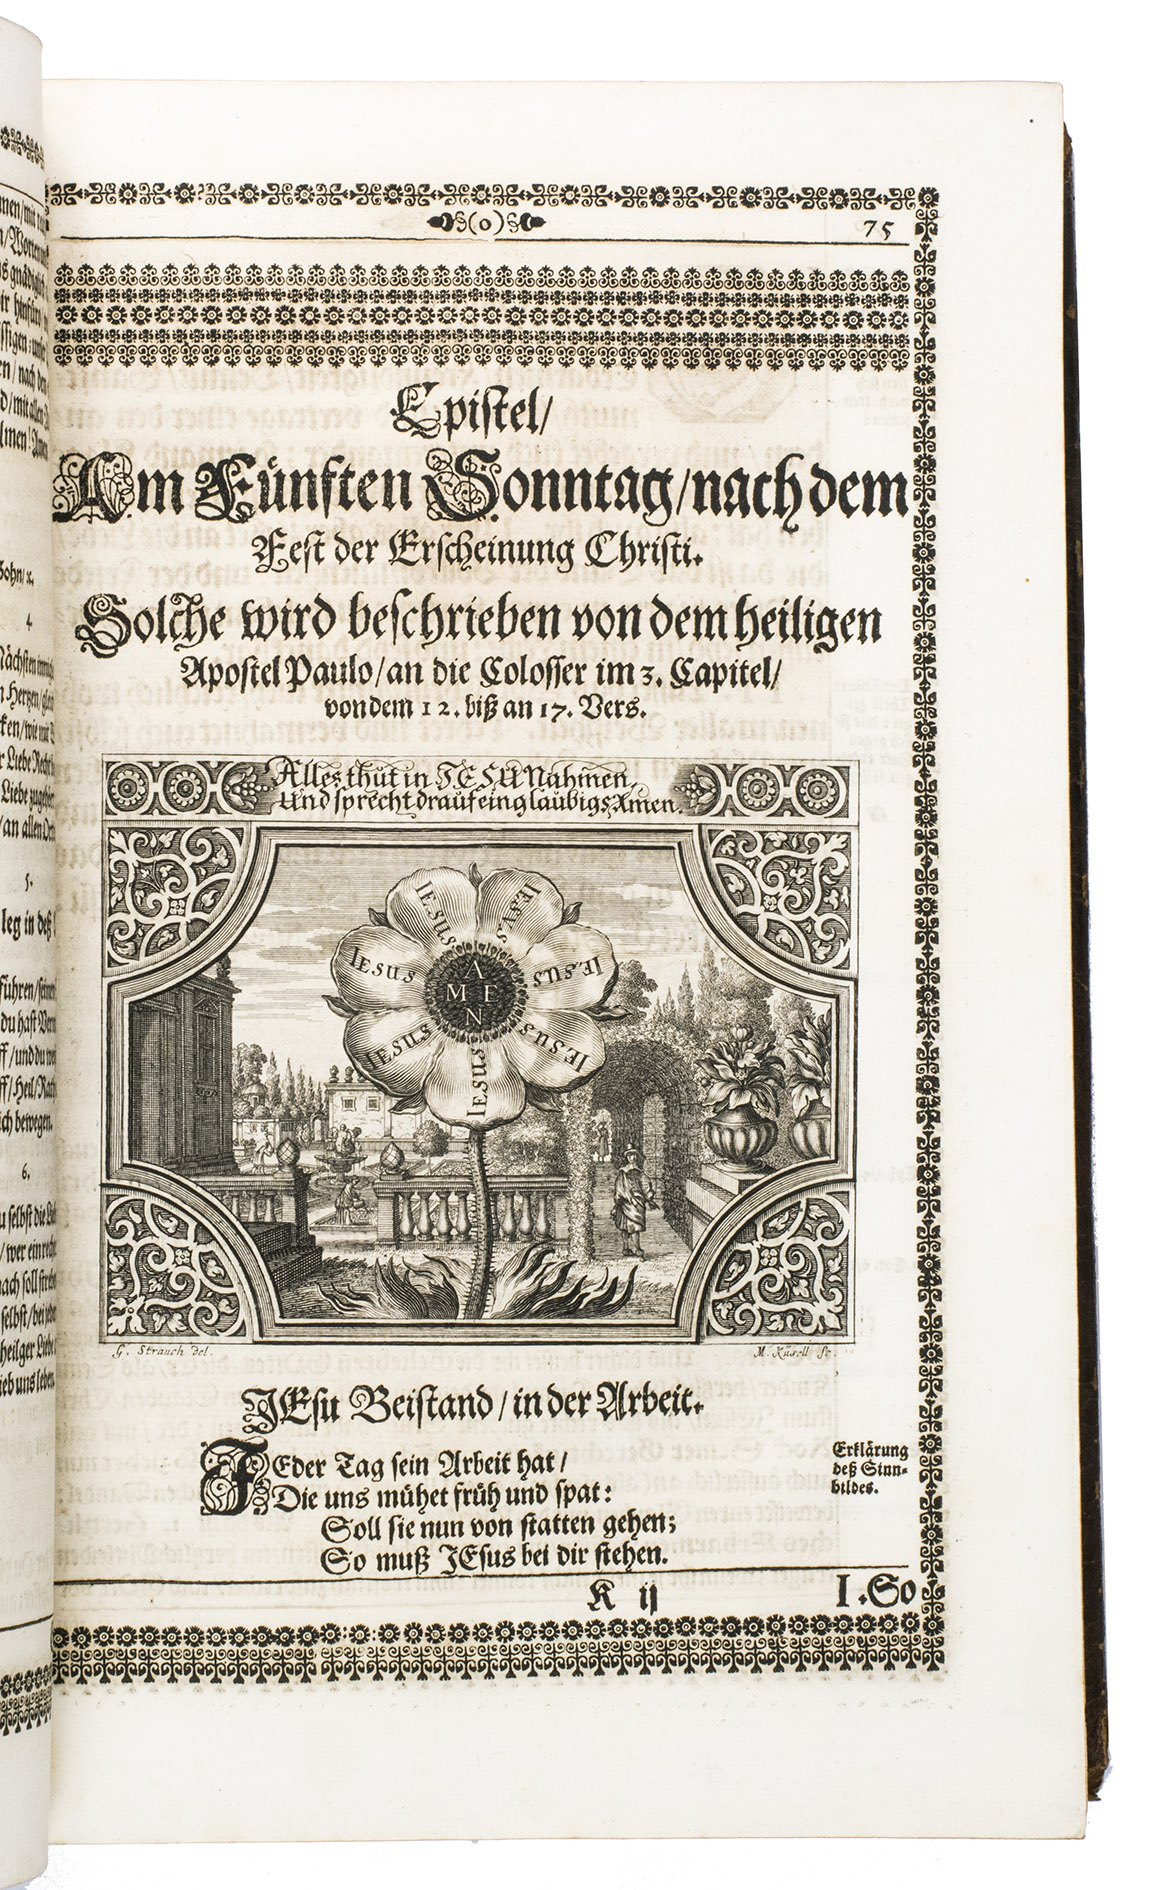 (0) 75
Epistel/
Am Fünften Sonntag/nach dem
Fest der Erscheinung Christi.
Solche wird beschrieben von dem heiligen
Apostel Paulo/an die Colosser im 3. Capitel/
von dem 12. biß an 17. Vers.
Alles thut in JESU Nahmen,
Und sprecht drauf ein glaubigs Amen.
IESUS
IESUS
IESUS
IESUS
IESUS
IESUS
IESUS
A
M E
N
G. Strauch del.
M. Küsell Sc.
JEsu Beistand/in der Arbeit.
JEder Tag sein Arbeit hat/
Die uns mühet früh und spat:
Soll sie nun von statten gehen;
So muß JEsus bei dir stehen.
Erklärung
deß Sinn-
bildes.
K ij
1.So
4
5.
leg in deß
führen/seine
du hast
ich bewegen.
6.
selbst die